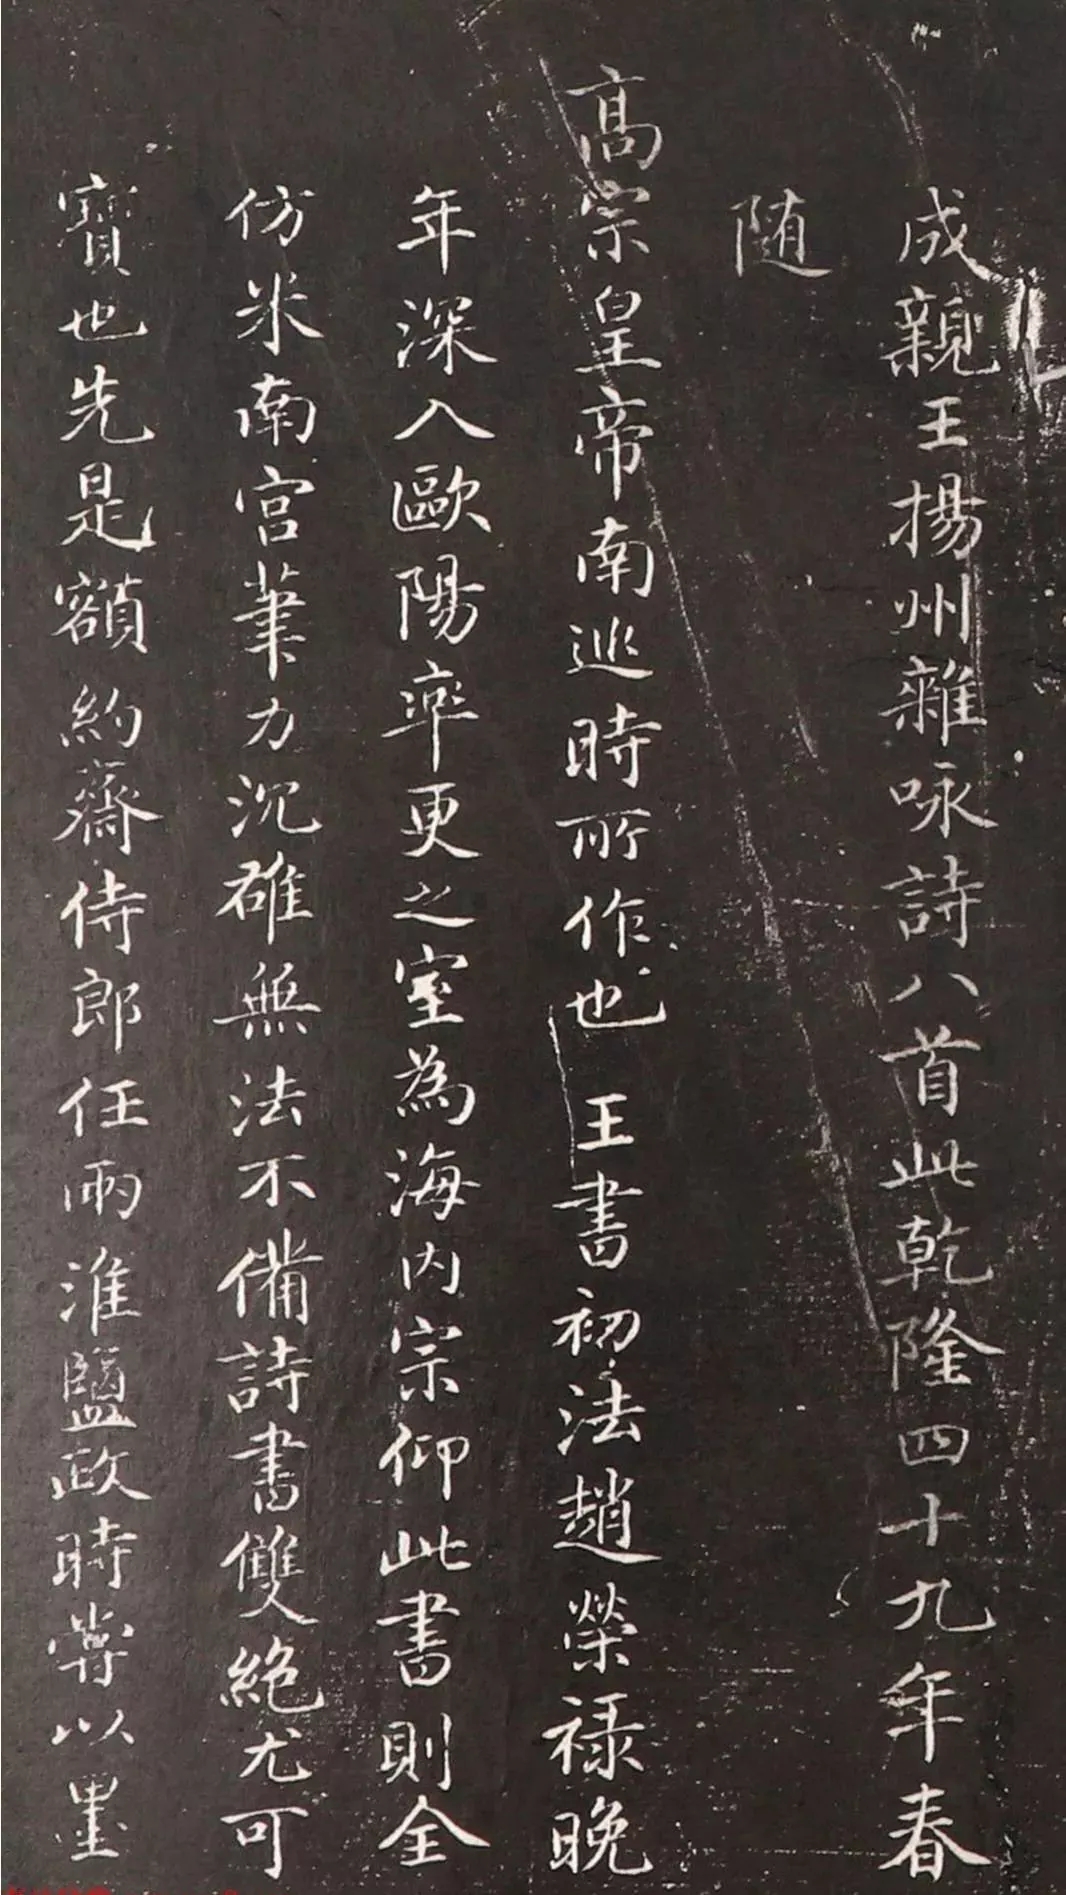 成親王揚州雜咏詩八首此乾隆四十九年春
随
髙宗皇帝南巡時所作也王書初法趙榮禄晚
年深入歐陽率更之室為海内宗仰此書則全
仿米南宫筆力沉雄無法不備詩書雙絶尤可
寶也先是額約齋侍郎任兩淮鹽政時嘗以墨